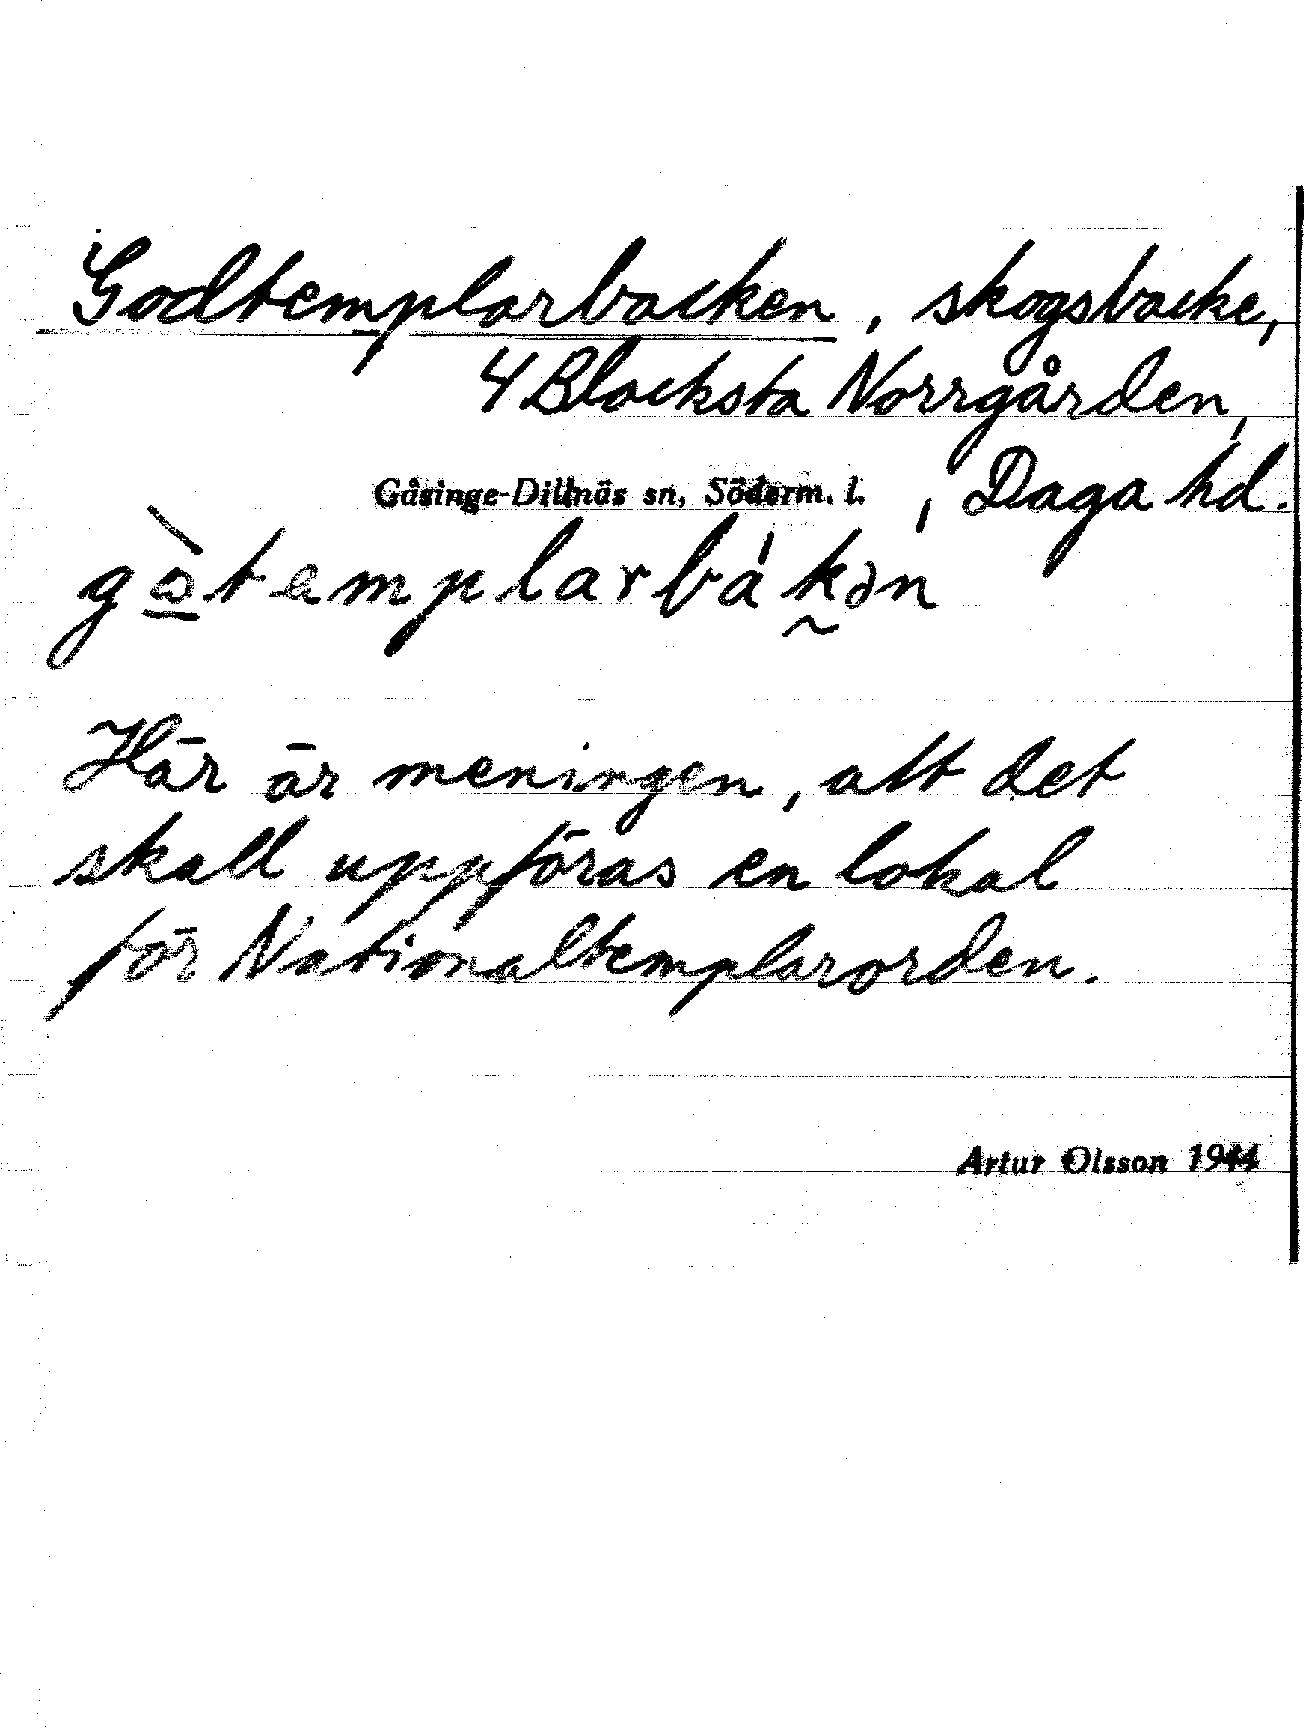 Godtemplarbacken, skogsbacke,
4 Blacksta Norrgården,
Gåsinge-Dillnäs sn, Söderm. l., Daga hd.
gòtemplarbákən
Här är meningen, att det
skall uppföras en lokal
för Nationaltemplarorden.
Artur Olsson 1944